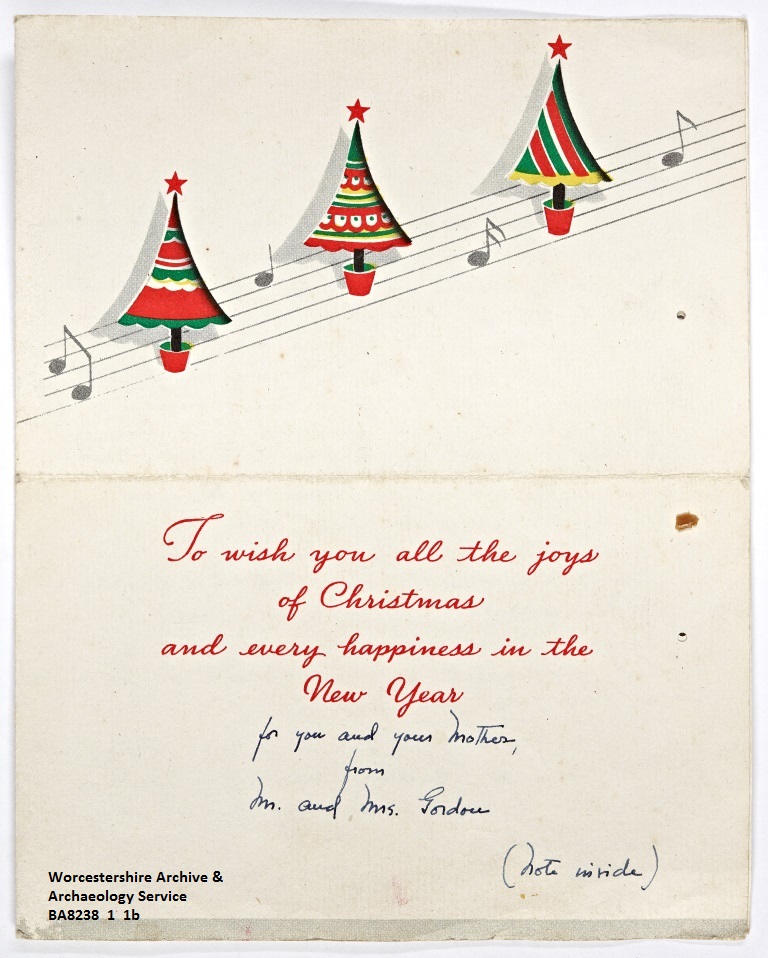 To wish you all the joys
of Christmas
and every happiness in the
New Year
for you and your Mother,
from
Mr. and Mrs. Gordon
(Note inside)
Worcestershire Archive &
Archaeology Service
BA8238 1 1b